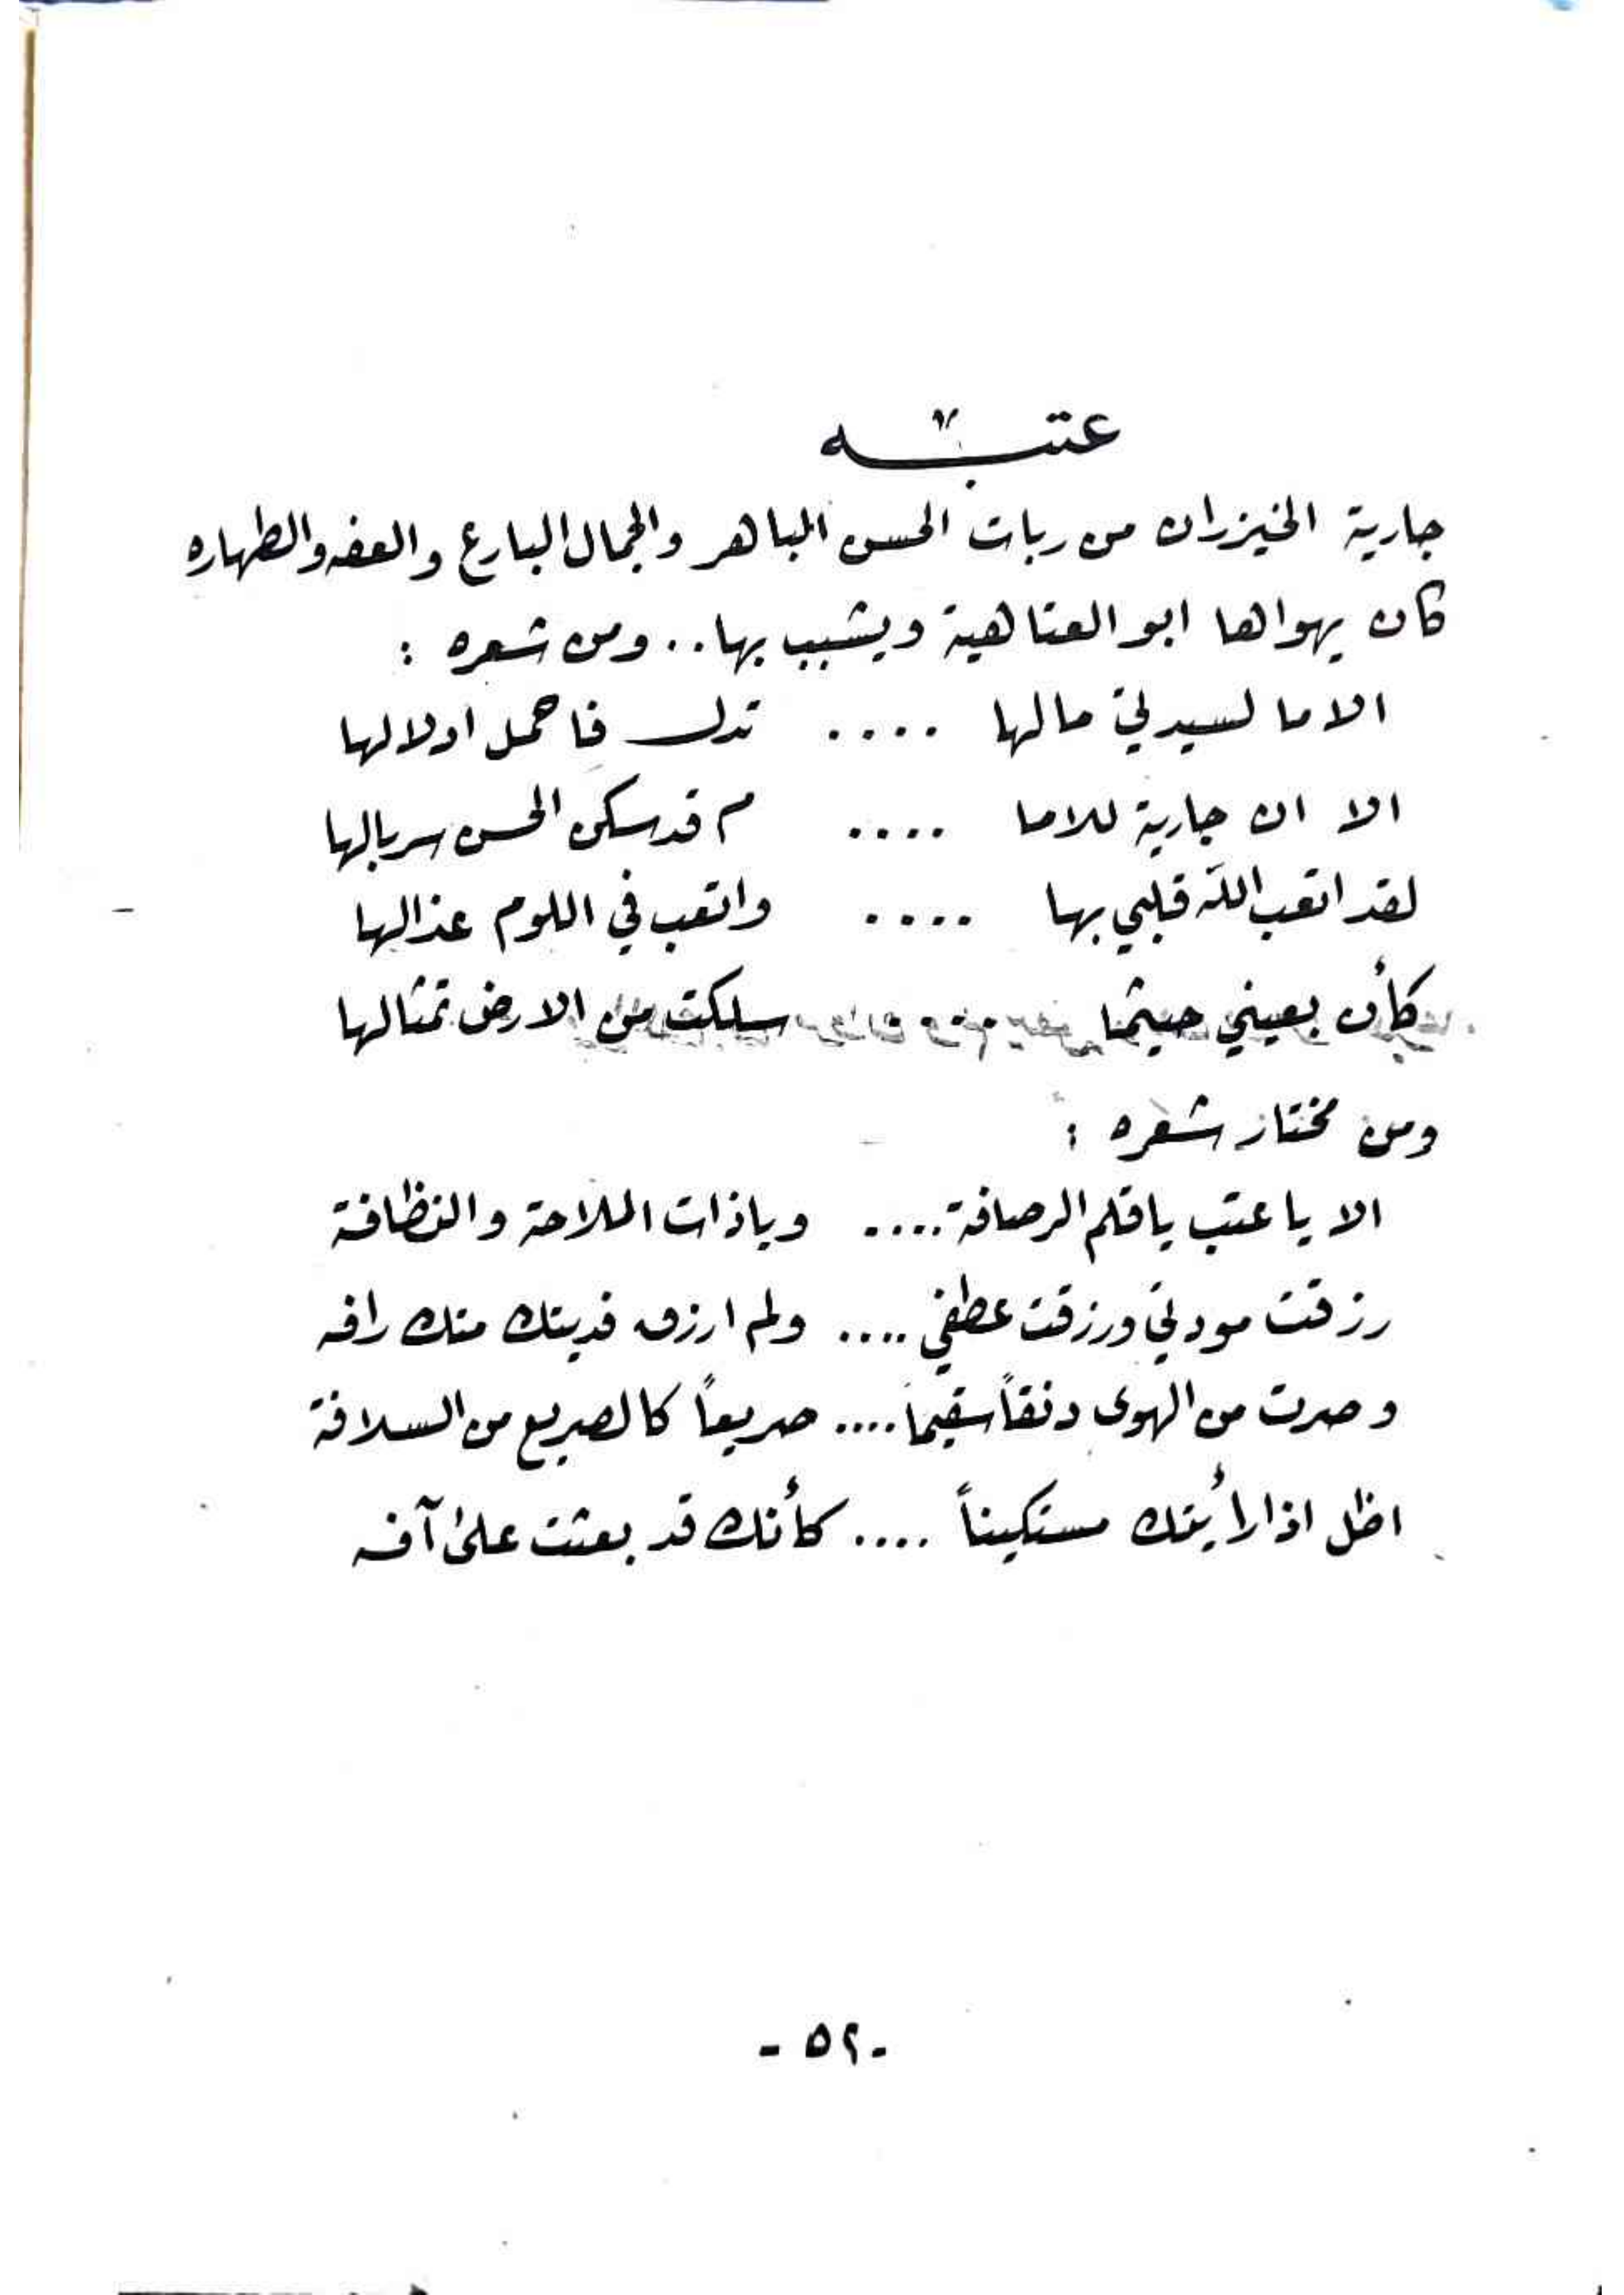 عتبـه
جارية الخيزران من ربات الحسن الباهر والجمال البارع والعفه والطهاره
كان يهواها ابو العتاهية ويشبب بها .. ومن شعره :
الا ما لسيدتي مالها .... تدل فاحمل ادلالها
الا ان جارية للاما .... م قد سكن الحسن سربالها
لقد اتعب الله قلبي بها .... واتعب في اللوم عذالها
كأن بعيني حيثما .... سلكت من الارض تمثالها
ومن مختار شعره :
الا يا عتب يا قلم الرصافة .... ويا ذات الملاحة والنظافة
رزقت مودتي ورزقت عطفي .... ولم ارزق فديتك منك رافه
وصرت من الهوى دنفاً سقيما .... صريعاً كالصريع من السلافة
اظل اذا رأيتك مستكيناً .... كأنك قد بعثت على آفه
- ٥٢ -